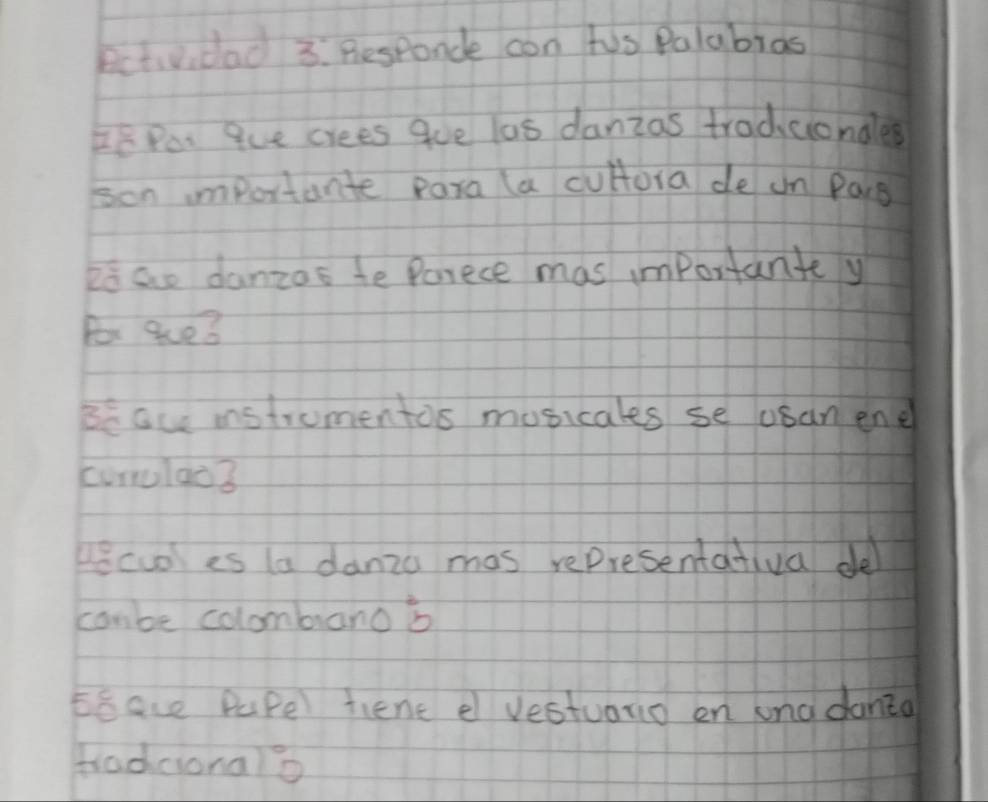 Actividad 3. Responde con tus Palabras
1¿ Por que crees que las danzas tradicionales
son importante para la cultura de un Pais
2¿ Que danzas te Parece mas importante y
Por que?
3¿ Que instrumentos musicales se usan en el
currulao?
4¿ cual es la danza mas representativa del
caribe colombiano?
5¿ Que Papel tiene el vestuario en una danza
tradicional?